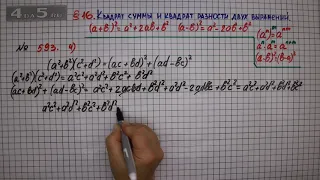 4 на 5 ру
§ 16. Квадрат суммы и квадрат разности двух выражений.
(a+b)² = a²+2ab+b²   (a-b)² = a²-2ab+b²
№ 593. 4)
(a²+b²)(c²+d²) = (ac+bd)²+(ad-bc)²
(a²+b²)(c²+d²) = a²c²+a²d²+b²c²+b²d²
(ac+bd)²+(ad-bc)² = a²c²+2acbd+b²d²+a²d²-2adbc+b²c² = a²c²+a²d²+b²d²+b²c²
a²c²+a²d²+b²c²+b²d²